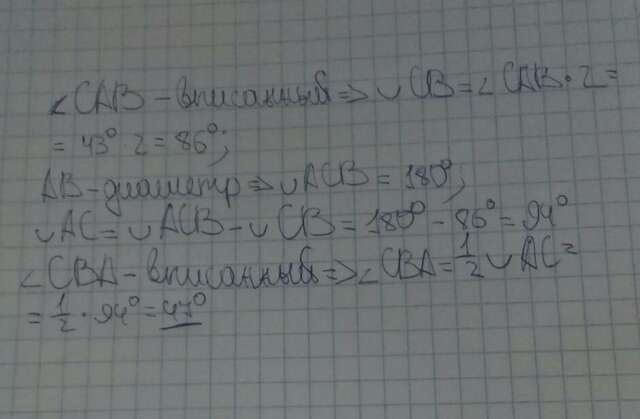 ∠CAB – вписанный ⇒ ◡CB = ∠CAB · 2 =
= 43° · 2 = 86°;
AB – диаметр ⇒ ◡ACB = 180°;
◡AC = ◡ACB – ◡CB = 180° – 86° = 94°
∠CBA – вписанный ⇒ ∠CBA = 1/2 ◡AC =
= 1/2 · 94° = 47°